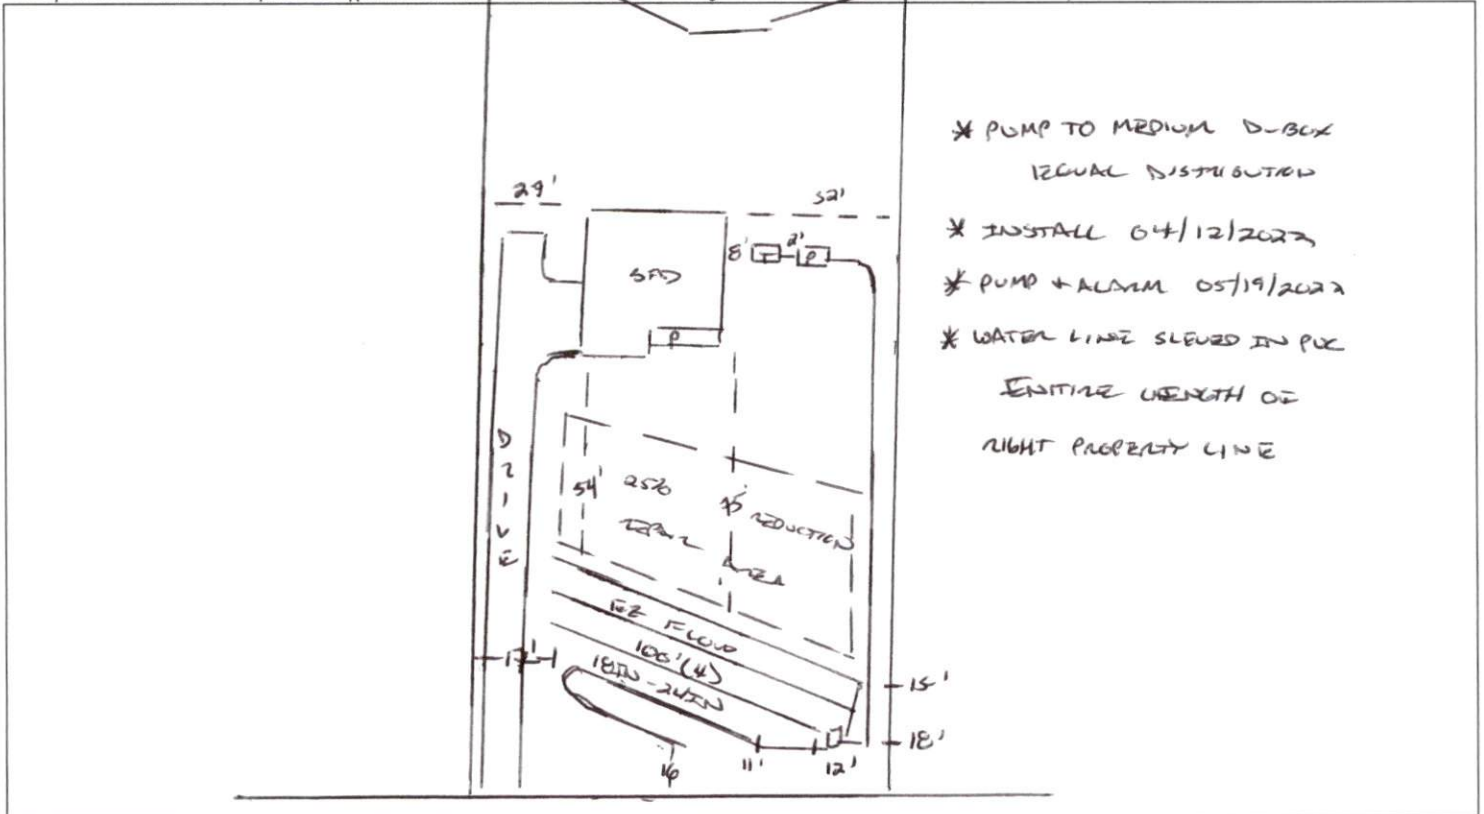 29'
32'
8' T 2' P
SFD
P
DRIVE
54' 25% REDUCTION
REPAIR AREA
EZ FLOW
100' (4)
18IN - 24IN
17'
15'
18'
16
11'
12'
* PUMP TO MEDIUM D-BOX
EQUAL DISTRIBUTION
* INSTALL 04/12/2022
* PUMP + ALARM 05/19/2022
* WATER LINE SLEVED IN PVC
ENITIRE LENGTH OF
RIGHT PROPERTY LINE